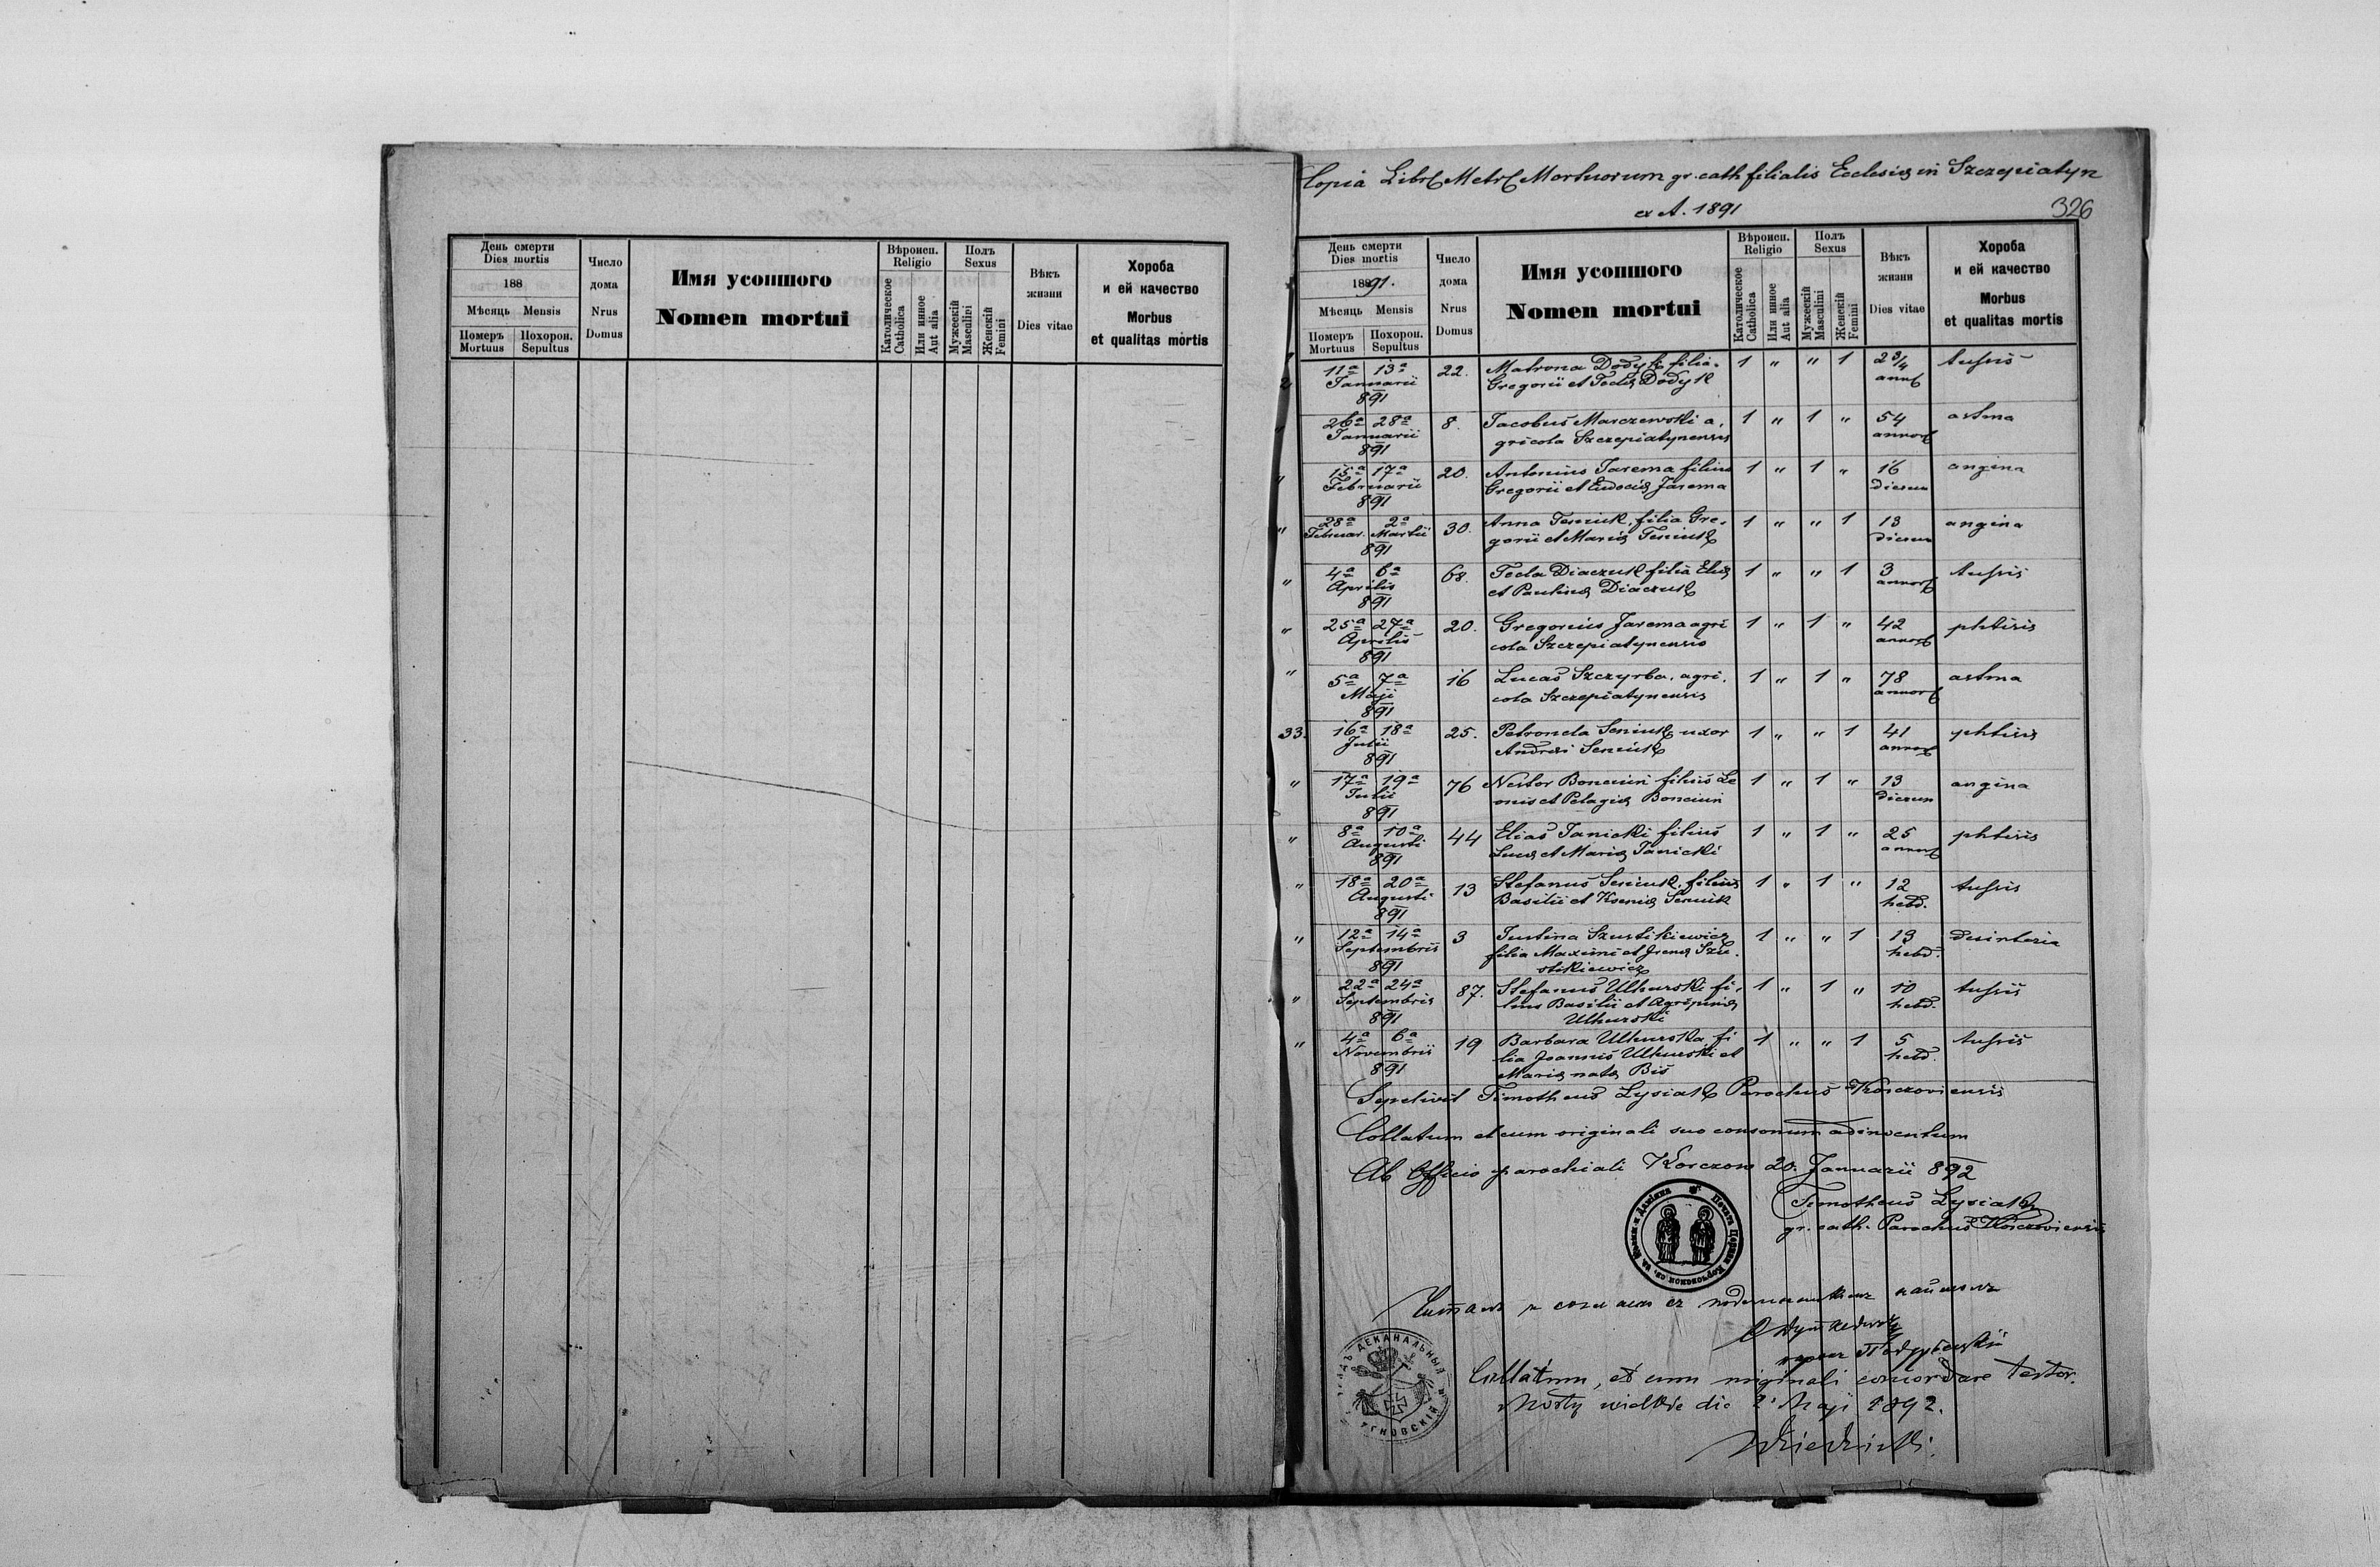 День смерти
Dies mortis
188
Мѣсяць Mensis
Померъ Mortuus
Похорон. Sepultus
Число дома
Nrus Domus
Имя усопшого
Nomen mortui
Вѣроисп. Religio
Католическое Catholica
Или инное Aut alia
Полъ Sexus
Мужескій Masculini
Женскій Femini
Вѣкъ жизни
Dies vitae
Хороба и ей качество
Morbus et qualitas mortis
Copia Libr Metr Mortuorum gr. cath filialis Ecclesiæ in Szczepiatyn
ex A. 1891
326
День смерти
Dies mortis
1891.
Мѣсяць Mensis
Померъ Mortuus
Похорон. Sepultus
Число дома
Nrus Domus
Имя усопшого
Nomen mortui
Вѣроисп. Religio
Католическое Catholica
Или инное Aut alia
Полъ Sexus
Мужескій Masculini
Женскій Femini
Вѣкъ жизни
Dies vitae
Хороба и ей качество
Morbus et qualitas mortis
11a 13a 22. Matrona Dodyk filia 1 " " 1 2 3/4 tussis
Januarii Gregorii et Teclæ Dodyk
891
26a 28a 8. Jacobus Marczewski a, 1 " 1 " 54 astma
Januarii gricola Szczepiatynensis annor
891
15a 17a 20. Antonius Jarema filius 1 " 1 " 16 angina
Februarii Gregorii et Eudociæ Jarema dierum
891
28a 2a 30. Anna Seniuk, filia Gre, 1 " " 1 13 angina
Februar. Martii gorii et Mariæ Seniuk dierum
891
4a 6a 68. Tecla Diaczuk filia Eliæ 1 " " 1 3 tussis
Aprilis et Paulinæ Diaczuk annor
891
25a 27a 20. Gregorius Jarema agri 1 " 1 " 42 phtisis
Aprilis cola Szczepiatynensis annor
891
5a 7a 16 Lucas Szczyrba, agri, 1 " 1 " 78 astma
Maji cola Szczepiatynensis annor
891
33. 16a 18a 25. Petronela Seniuk uxor 1 " " 1 41 phtisis
Julii Andreæ Seniuk annor
891
17a 19a 76 Nestor Bonciun filius Le 1 " 1 " 13 angina
Julii onis et Pelagiæ Bonciun dierum
891
8a 10a 44 Elias Janicki filius 1 " 1 " 25 phtisis
Augusti Lucæ et Mariæ Janicki annor
891
18a 20a 13 Stefanus Seniuk, filius 1 " 1 " 12 tussis
Augusti Basilii et Kseniæ Seniuk hebd.
891
12a 14a 3 Justina Szustikiewicz 1 " " 1 13 desinteria
Septembris filia Maximi et Irenæ Szu,
891 stikiewicz hebd.
22a 24a 87. Stefanus Uhurski fi, 1 " 1 " 10 tussis
Septembris lius Basilii et Agripinæ hebd.
891 Uhurski
4a 6a 19 Barbara Uhurska, fi 1 " " 1 5 tussis
Novembris lia Joannis Uhurski et hebd.
891 Mariæ nata Bis
Sepelivit Timotheus Lysiak Parochus Korczoviensis
Collatum et cum originali suo consonum adinventum
Ab Officio parochiali Korczow 20. Januarii 892
Timotheus Lysiak
gr. cath. Parochus Korczoviensis
Collatum, et cum originali concordare testor.
Mosty wielkie die 2 Maji 1892.